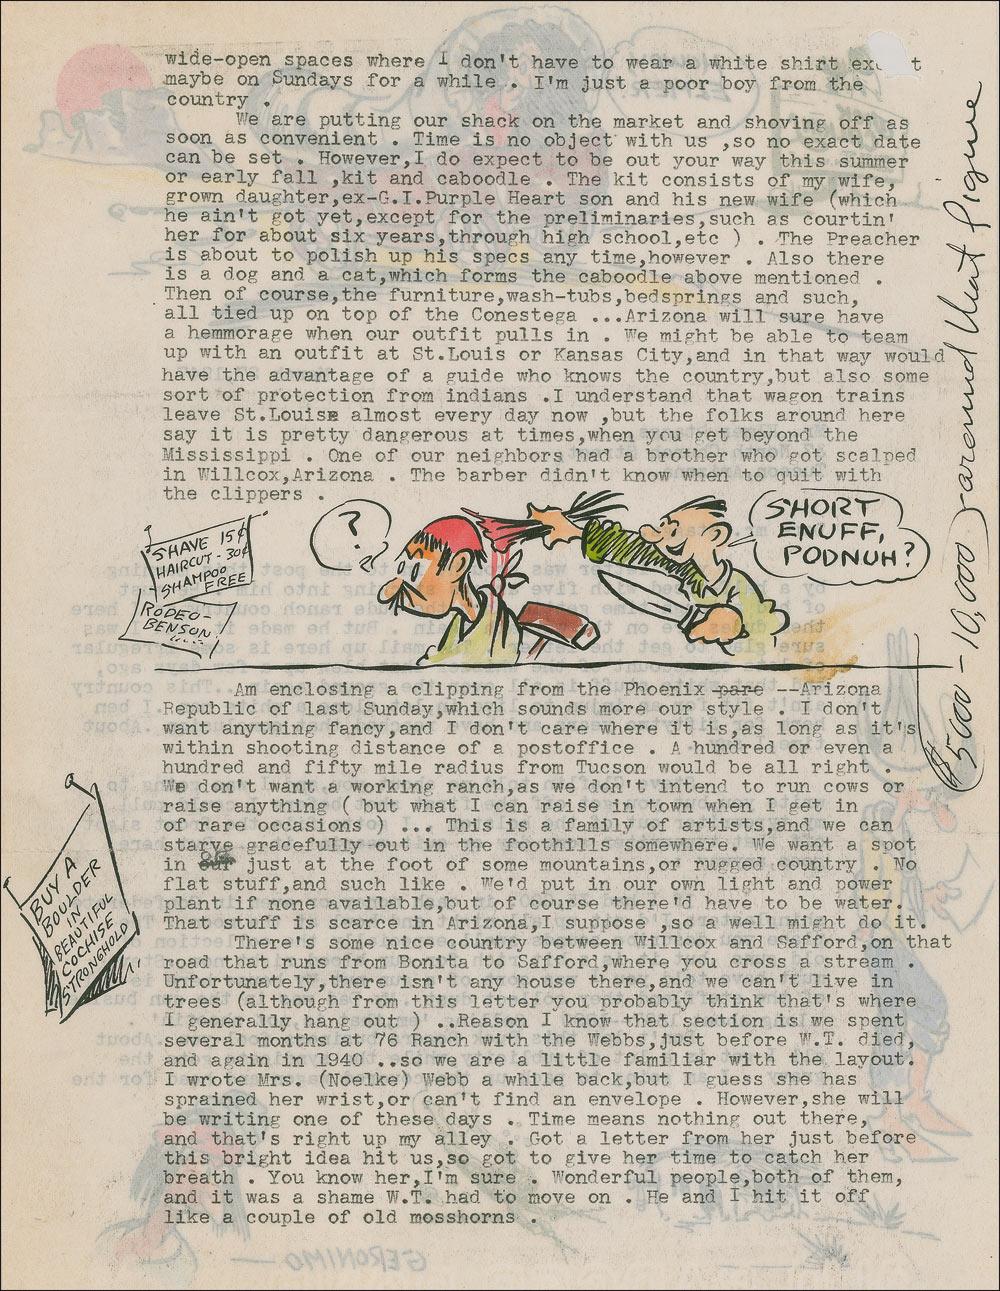 wide-open spaces where I don't have to wear a white shirt exc t
maybe on Sundays for a while . I'm just a poor boy from the
country .
We are putting our shack on the market and shoving off as
soon as convenient . Time is no object with us ,so no exact date
can be set . However,I do expect to be out your way this summer
or early fall ,kit and caboodle . The kit consists of my wife,
grown daughter,ex-G.I.Purple Heart son and his new wife (which
he ain't got yet,except for the preliminaries,such as courtin'
her for about six years,through high school,etc ) . The Preacher
is about to polish up his specs any time,however . Also there
is a dog and a cat,which forms the caboodle above mentioned .
Then of course,the furniture,wash-tubs,bedsprings and such,
all tied up on top of the Conestega ...Arizona will sure have
a hemmorage when our outfit pulls in . We might be able to team
up with an outfit at St.Louis or Kansas City,and in that way would
have the advantage of a guide who knows the country,but also some
sort of protection from indians .I understand that wagon trains
leave St.Louise almost every day now ,but the folks around here
say it is pretty dangerous at times,when you get beyond the
Mississippi . One of our neighbors had a brother who got scalped
in Willcox,Arizona . The barber didn't know when to quit with
the clippers .
SHAVE 15¢
HAIRCUT - 30¢
SHAMPOO
FREE
RODEO-
BENSON
?
SHORT
ENUFF,
PODNUH?
Am enclosing a clipping from the Phoenix pare --Arizona
Republic of last Sunday,which sounds more our style . I don't
want anything fancy,and I don't care where it is,as long as it's
within shooting distance of a postoffice . A hundred or even a
hundred and fifty mile radius from Tucson would be all right .
We don't want a working ranch,as we don't intend to run cows or
raise anything ( but what I can raise in town when I get in
of rare occasions ) ... This is a family of artists,and we can
starve gracefully out in the foothills somewhere. We want a spot
in our just at the foot of some mountains,or rugged country . No
flat stuff,and such like . We'd put in our own light and power
plant if none available,but of course there'd have to be water.
That stuff is scarce in Arizona,I suppose ,so a well might do it.
There's some nice country between Willcox and Safford,on that
road that runs from Bonita to Safford,where you cross a stream .
Unfortunately,there isn't any house there,and we can't live in
trees (although from this letter you probably think that's where
I generally hang out ) ..Reason I know that section is we spent
several months at 76 Ranch with the Webbs,just before W.T. died,
and again in 1940 ..so we are a little familiar with the layout.
I wrote Mrs. (Noelke) Webb a while back,but I guess she has
sprained her wrist,or can't find an envelope . However,she will
be writing one of these days . Time means nothing out there,
and that's right up my alley . Got a letter from her just before
this bright idea hit us,so got to give her time to catch her
breath . You know her,I'm sure . Wonderful people,both of them,
and it was a shame W.T. had to move on . He and I hit it off
like a couple of old mosshorns .
BUY A
BOULDER
IN
BEAUTIFUL
COCHISE
STRONGHOLD
$7500 - 10,000 - around that figure
GERONIMO